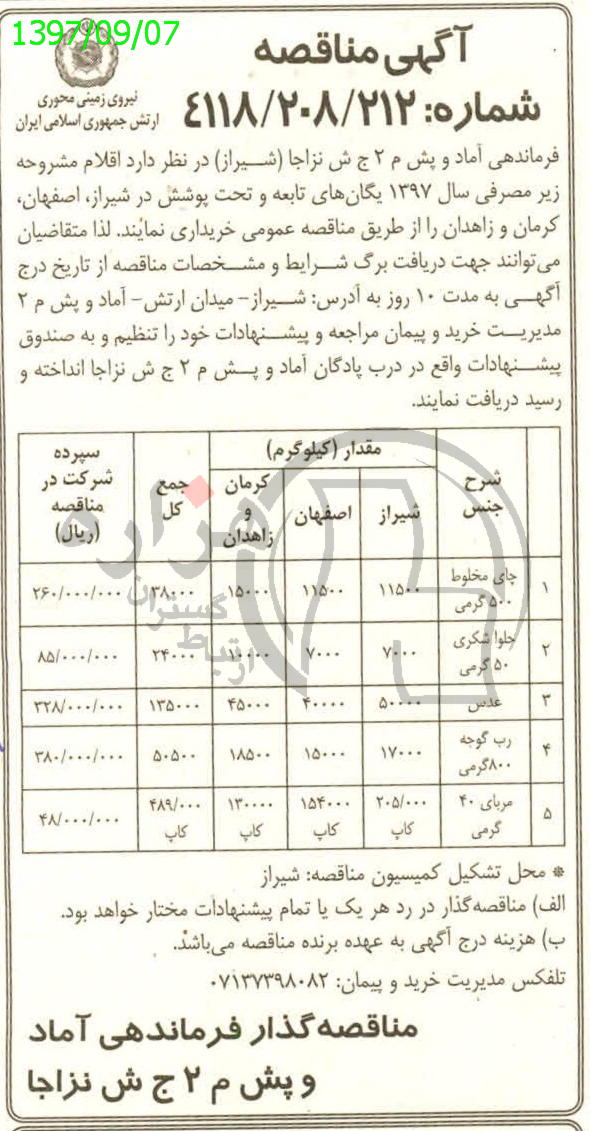 1397/09/07
آگهی مناقصه
شماره: ۴۱۱۸/۲۰۸/۲۱۲
نیروی زمینی محوری
ارتش جمهوری اسلامی ایران
فرماندهی آماد و پش م ۲ ج ش نزاجا (شیراز) در نظر دارد اقلام مشروحه
زیر مصرفی سال ۱۳۹۷ یگان‌های تابعه و تحت پوشش در شیراز، اصفهان،
کرمان و زاهدان را از طریق مناقصه عمومی خریداری نمایند. لذا متقاضیان
می‌توانند جهت دریافت برگ شرایط و مشخصات مناقصه از تاریخ درج
آگهی به مدت ۱۰ روز به آدرس: شیراز- میدان ارتش- آماد و پش م ۲
مدیریت خرید و پیمان مراجعه و پیشنهادات خود را تنظیم و به صندوق
پیشنهادات واقع در درب پادگان آماد و پش م ۲ ج ش نزاجا انداخته و
رسید دریافت نمایند.
شرح جنس | مقدار (کیلوگرم) | جمع کل | سپرده شرکت در مناقصه (ریال)
شیراز | اصفهان | کرمان و زاهدان
۱ | چای مخلوط ۵۰۰ گرمی | ۱۱۵۰۰ | ۱۱۵۰۰ | ۱۵۰۰۰ | ۳۸۰۰۰ | ۲۶۰/۰۰۰/۰۰۰
۲ | حلوا شکری ۵۰ گرمی | ۷۰۰۰ | ۷۰۰۰ | ۱۰۰۰۰ | ۲۴۰۰۰ | ۸۵/۰۰۰/۰۰۰
۳ | عدس | ۵۰۰۰۰ | ۴۰۰۰۰ | ۴۵۰۰۰ | ۱۳۵۰۰۰ | ۳۲۸/۰۰۰/۰۰۰
۴ | رب گوجه ۸۰۰گرمی | ۱۷۰۰۰ | ۱۵۰۰۰ | ۱۸۵۰۰ | ۵۰۵۰۰ | ۳۸۰/۰۰۰/۰۰۰
۵ | مربای ۴۰ گرمی | ۲۰۵/۰۰۰ کاپ | ۱۵۴۰۰۰ کاپ | ۱۳۰۰۰۰ کاپ | ۴۸۹/۰۰۰ کاپ | ۴۸/۰۰۰/۰۰۰
هزاره
گستران
ارتباط
* محل تشکیل کمیسیون مناقصه: شیراز
الف) مناقصه‌گذار در رد هر یک یا تمام پیشنهادات مختار خواهد بود.
ب) هزینه درج آگهی به عهده برنده مناقصه می‌باشد.
تلفکس مدیریت خرید و پیمان: ۰۷۱۳۷۳۹۸۰۸۲
مناقصه‌گذار فرماندهی آماد
و پش م ۲ ج ش نزاجا